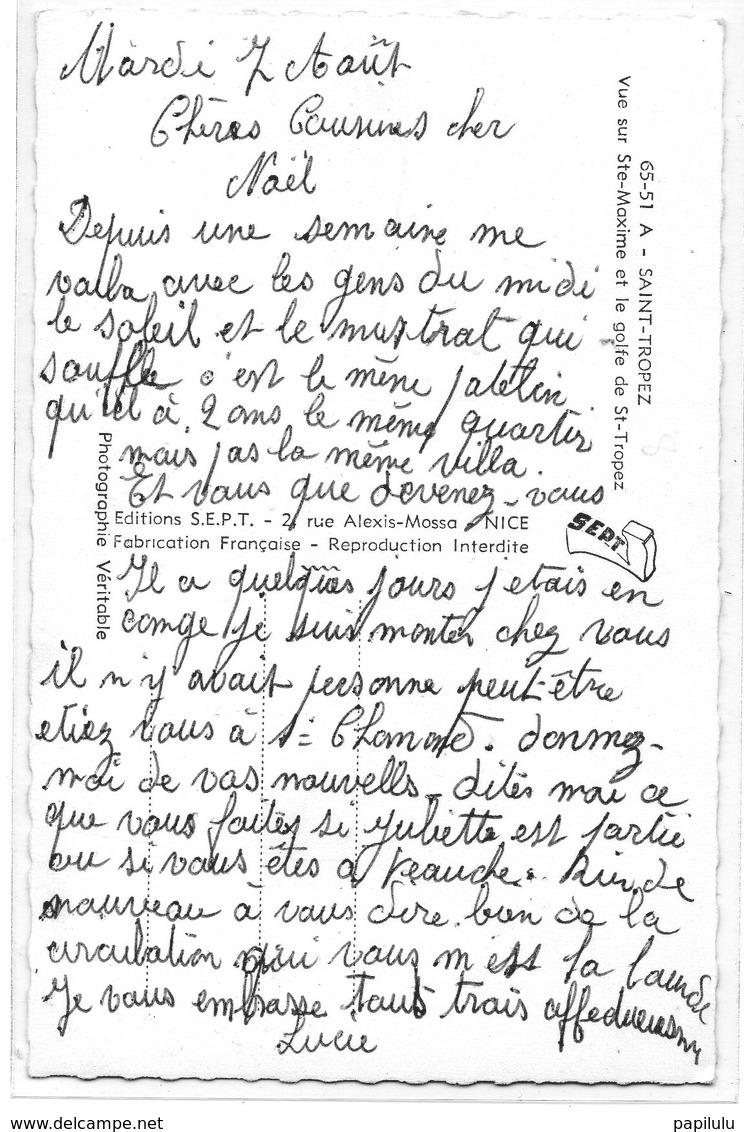 Mardi 7 Août
Chères Cousines cher
Noël
Depuis une semaine me
voila avec les gens du midi
le soleil et le mistral qui
souffle c'est le même patelin
qu'il à 2 ans le même quartier
mais pas la même villa.
Et vous que devenez-vous
Il a quelques jours j etais en
conge je suis monter chez vous
il n y avait personne peut-être
etiez vous à St Chamond. donnez-
moi de vos nouvells. dites moi ce
que vous faites si Juliette est partie
ou si vous êtes a Veauche. Rien de
nouveau à vous dire bien de la
circulation
Je vous embrasse tous trois affectueusem
Lucie
65-51 A - SAINT-TROPEZ
Vue sur Ste-Maxime et le golfe de St-Tropez
Photographie Véritable
Editions S.E.P.T. - 2, rue Alexis-Mossa - NICE
Fabrication Française - Reproduction Interdite
SEPT
delcampe.net
papilulu